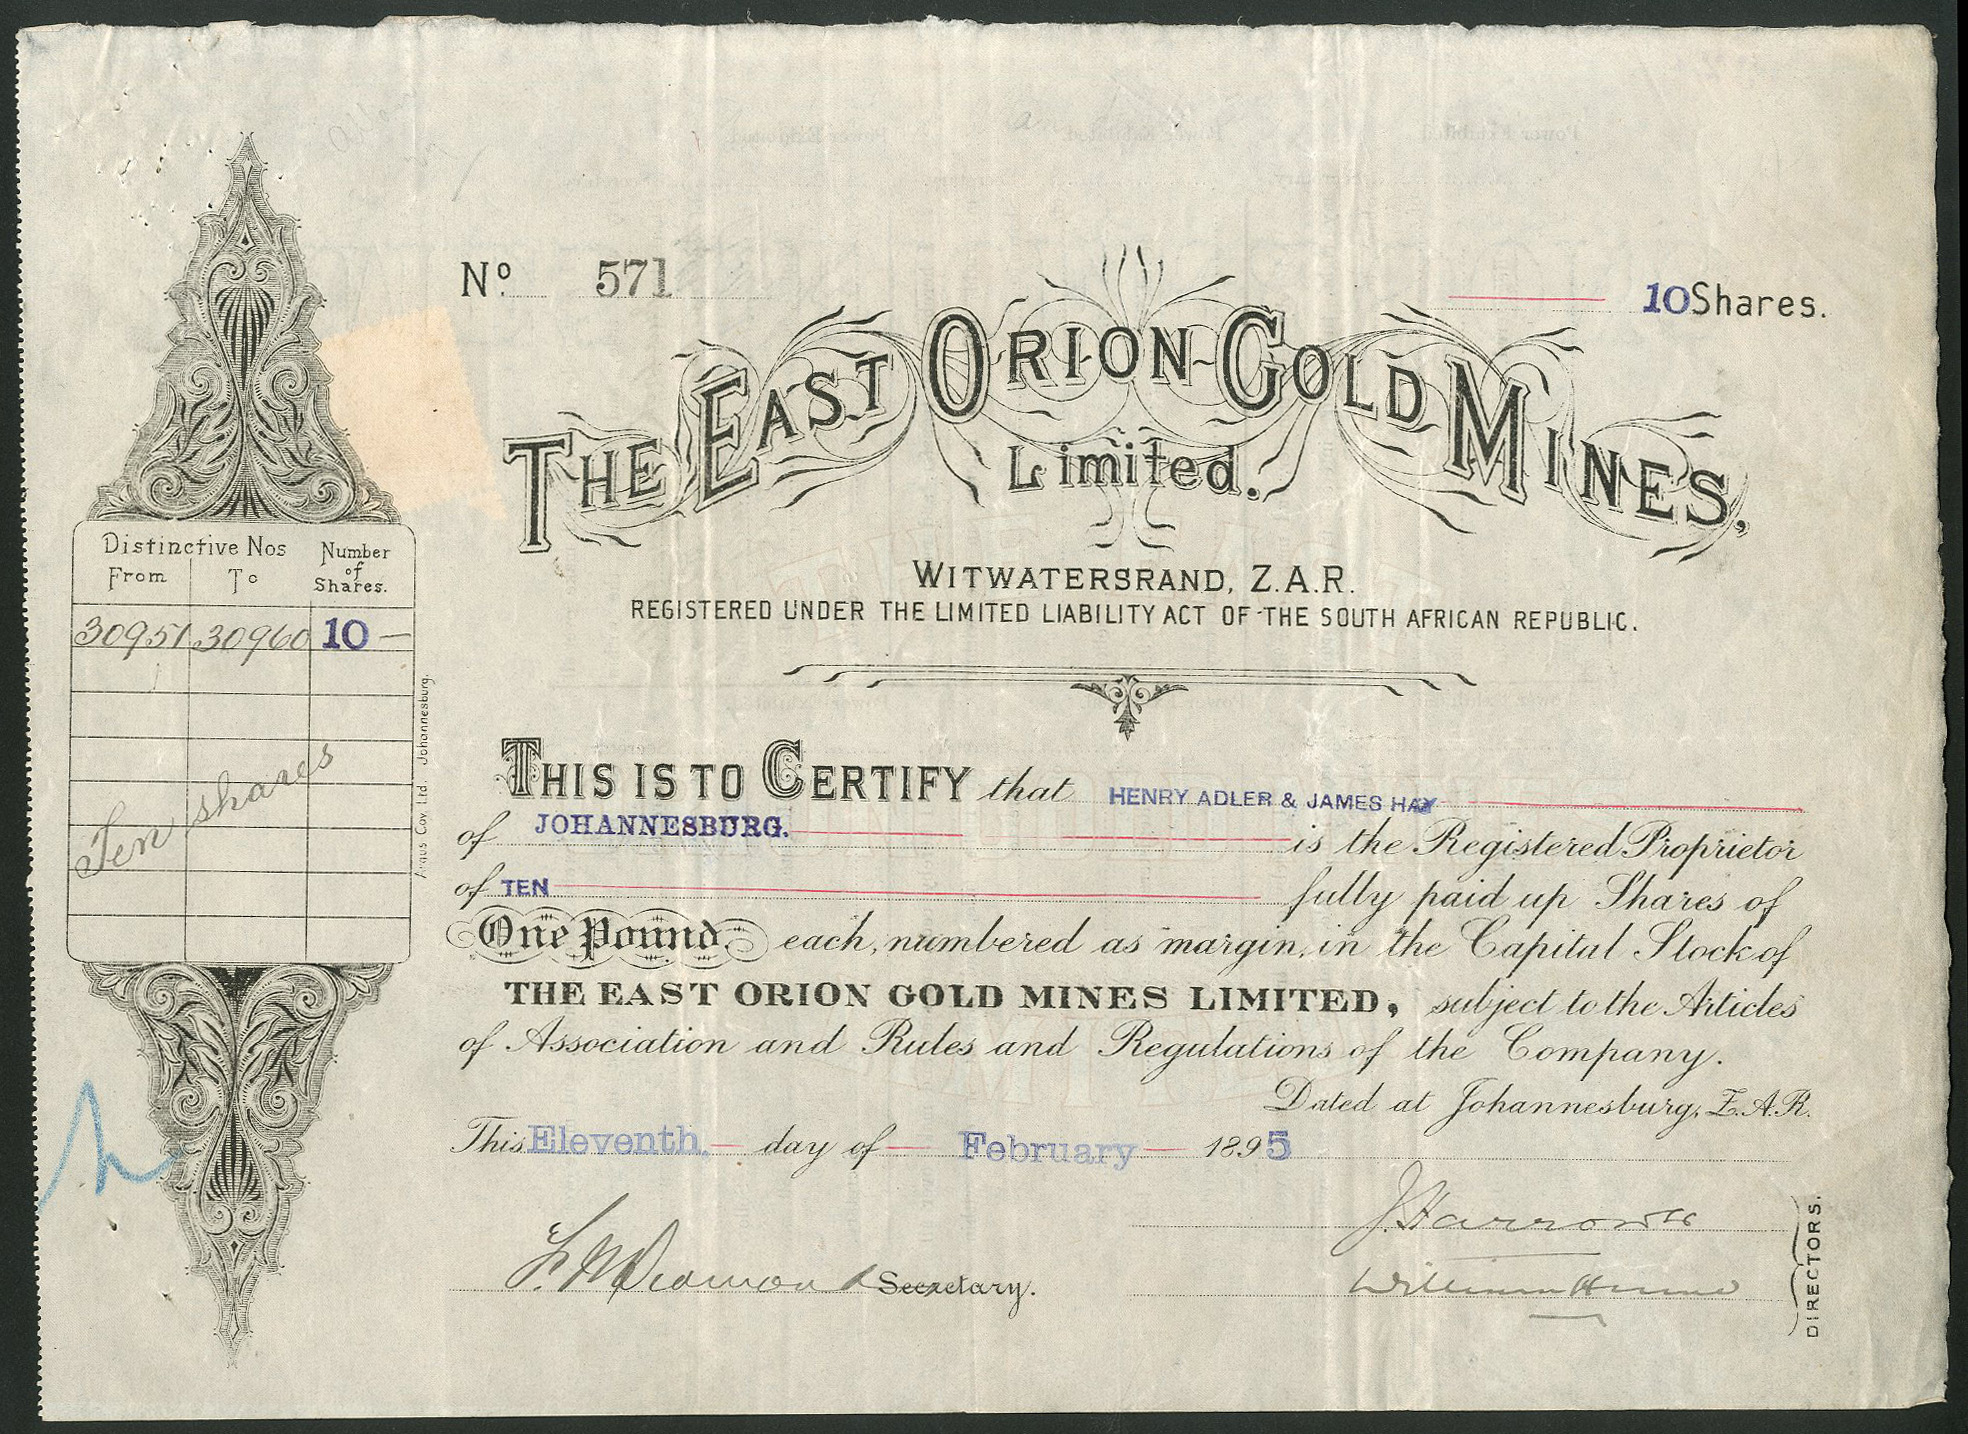 No. 571
10 Shares.
THE EAST ORION GOLD MINES,
Limited.
WITWATERSRAND, Z.A.R.
REGISTERED UNDER THE LIMITED LIABILITY ACT OF THE SOUTH AFRICAN REPUBLIC.
Distinctive Nos Number of Shares.
From To
30951 30960 10 —
Ten shares
Argus Coy. Ltd. Johannesburg.
THIS IS TO CERTIFY that HENRY ADLER & JAMES HAY
of JOHANNESBURG. is the Registered Proprietor
of TEN fully paid up Shares of
One Pound each, numbered as margin, in the Capital Stock of
THE EAST ORION GOLD MINES LIMITED, subject to the Articles
of Association and Rules and Regulations of the Company.
Dated at Johannesburg, Z.A.R.
This Eleventh. — day of — February — 1895
Secretary.
William Hume
DIRECTORS.